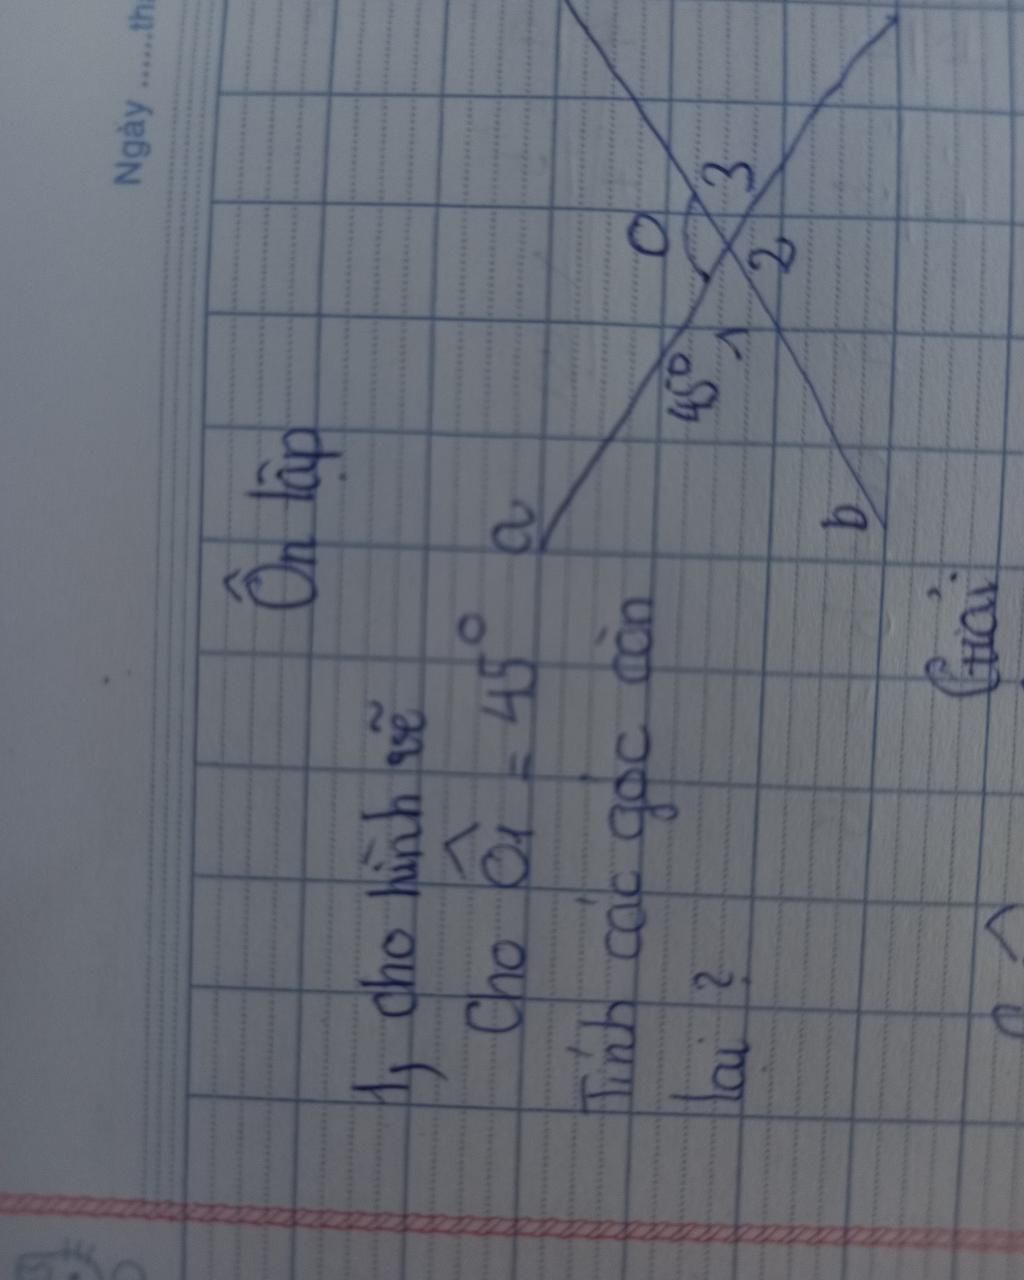 Ngày ......th
Ôn tập
1, cho hình vẽ
Cho Ô1 = 45°
Tính các góc còn
lại ?
a
45°
O
1
3
2
b
Giải